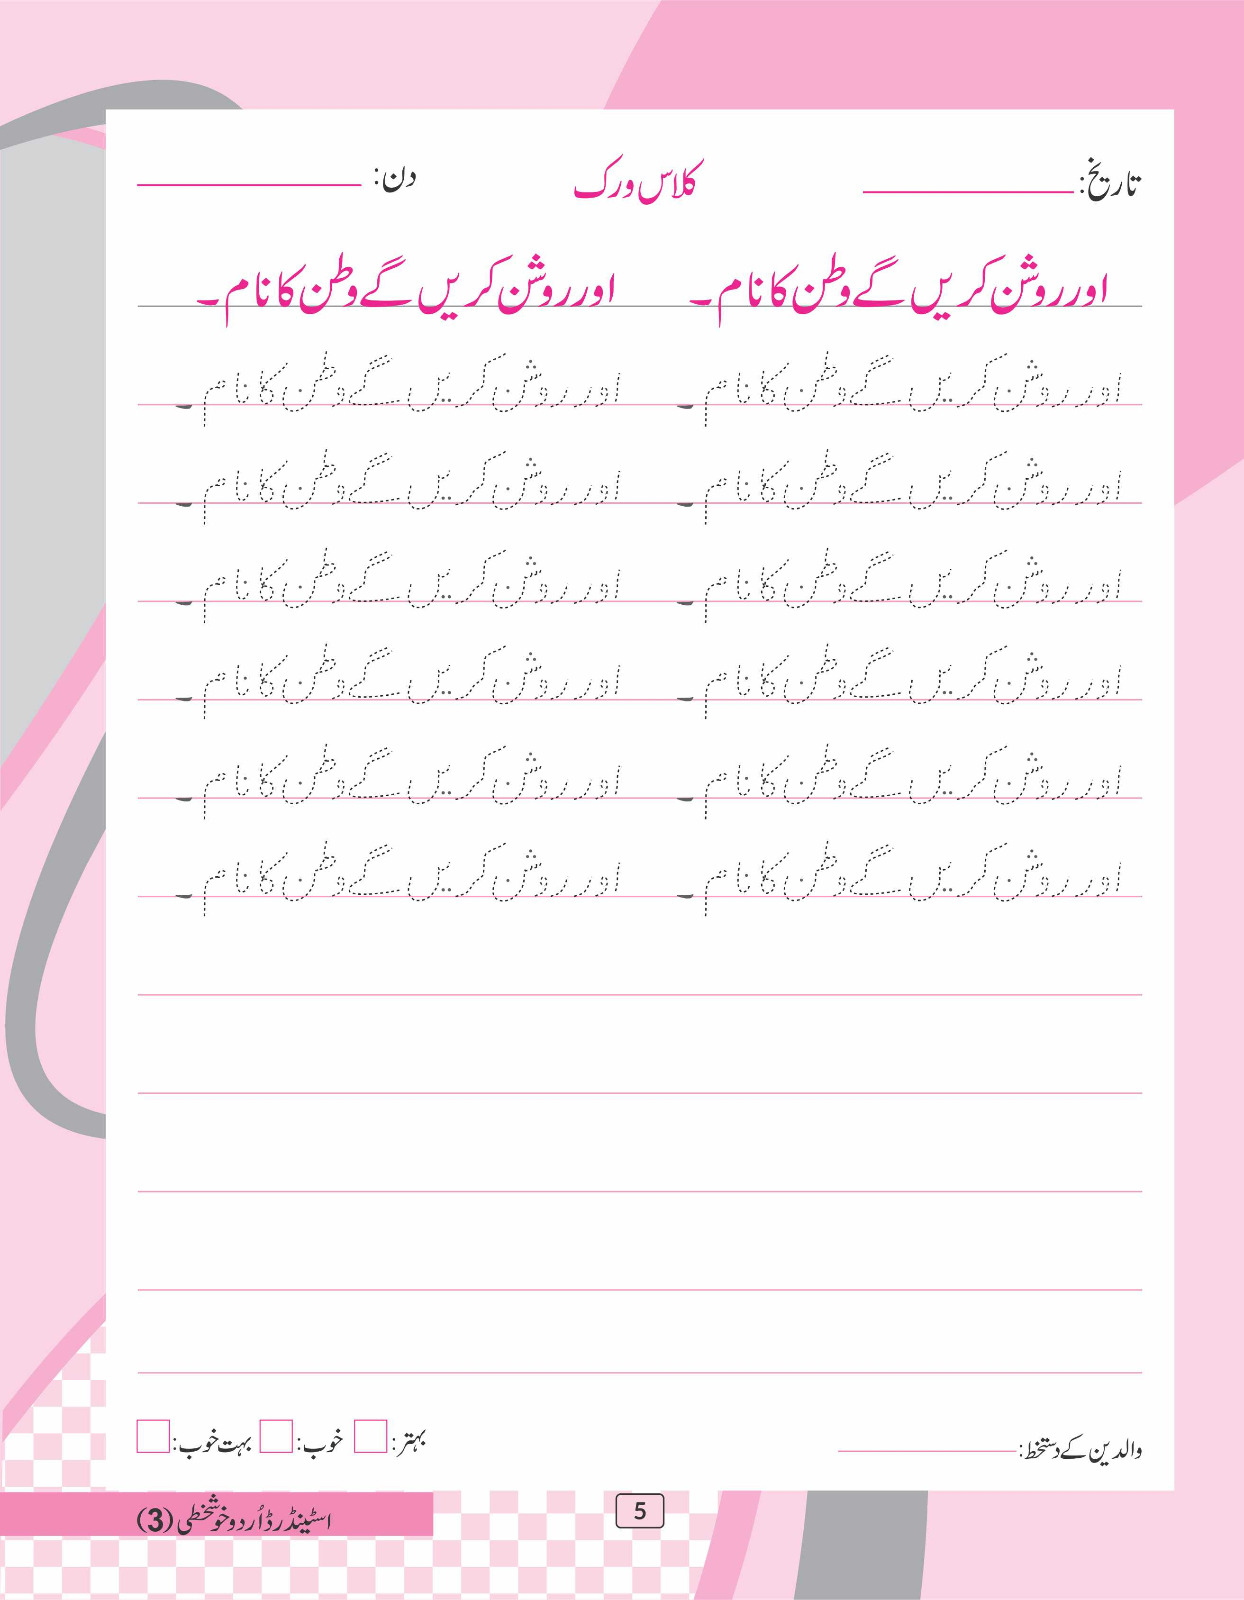 تاریخ: کلاس ورک دن:
اور روشن کریں گے وطن کا نام۔ اور روشن کریں گے وطن کا نام۔
اور روشن کریں گے وطن کا نام۔ اور روشن کریں گے وطن کا نام۔
اور روشن کریں گے وطن کا نام۔ اور روشن کریں گے وطن کا نام۔
اور روشن کریں گے وطن کا نام۔ اور روشن کریں گے وطن کا نام۔
اور روشن کریں گے وطن کا نام۔ اور روشن کریں گے وطن کا نام۔
اور روشن کریں گے وطن کا نام۔ اور روشن کریں گے وطن کا نام۔
اور روشن کریں گے وطن کا نام۔ اور روشن کریں گے وطن کا نام۔
والدین کے دستخط: بہتر: خوب: بہت خوب:
5
اسٹینڈرڈ اُردو خوشخطی (3)